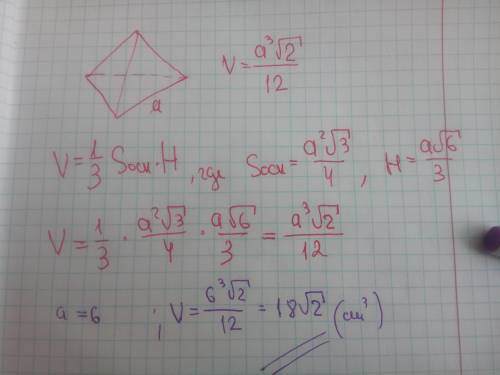 a
V = a³√2 / 12
V = 1/3 Sосн · H, где Sосн = a²√3 / 4, H = a√6 / 3
V = 1/3 · a²√3 / 4 · a√6 / 3 = a³√2 / 12
a = 6 ; V = 6³√2 / 12 = 18√2 (cm³)